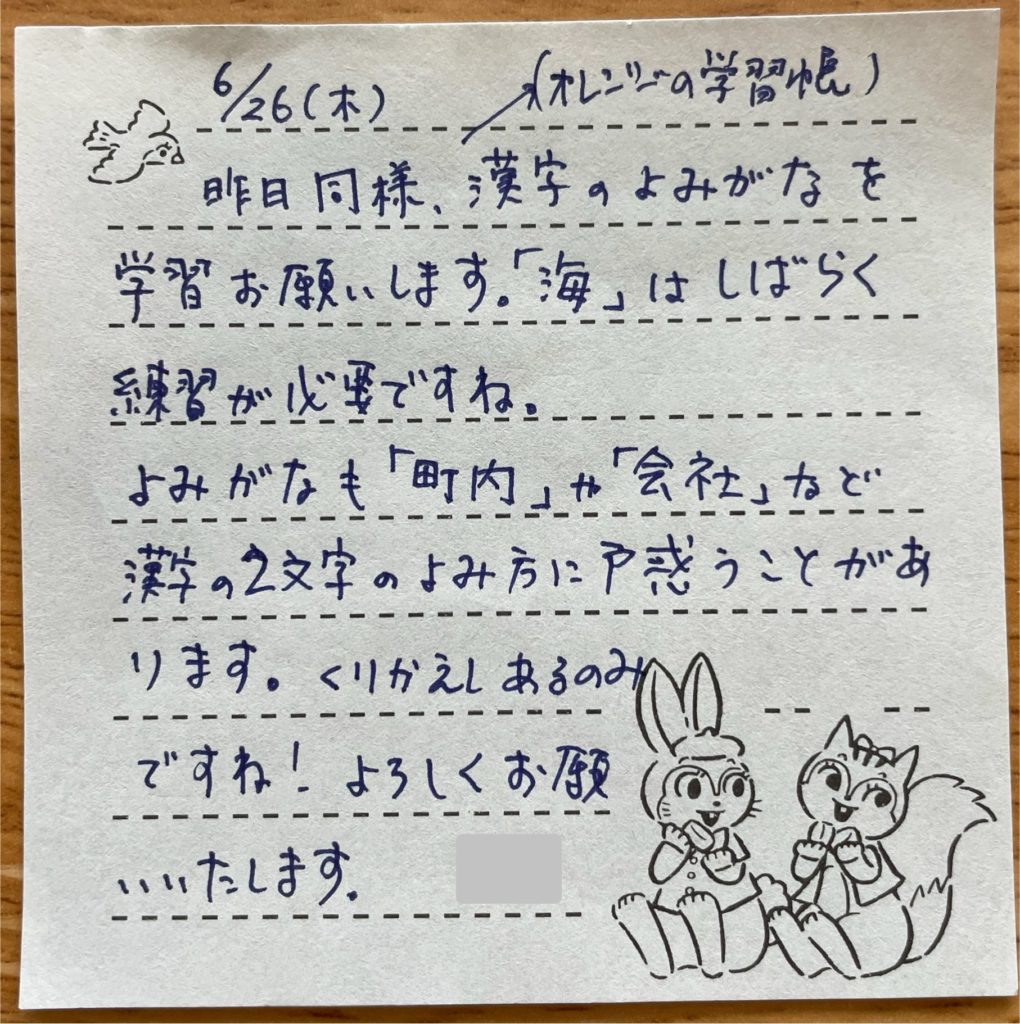 6/26(木)
(オレンジの学習帳)
昨日同様、漢字のよみがなを
学習お願いします。「海」はしばらく
練習が必要ですね。
よみがなも「町内」や「会社」など
漢字の2文字のよみ方に戸惑うことがあ
ります。くりかえしあるのみ
ですね！よろしくお願
いいたします。